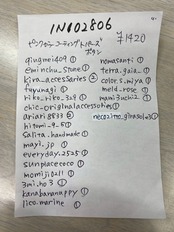 INC02806
71420
giugmei409 ①
eminchu_stone ①
kira_accessories ②
fuyunagi ①
riko.riko.329 ①
chic-originalaccessories ①
ariari8833 ②
hitomi-9-5 ①
Salita.handmade ①
mayl.jp ①
everyday.2525 ①
sunplacecoco ①
momiji0211 ①
3mi.ho3 ①
kanabananappy ①
lico.marine ①
nomasanti ①
terra.gaia_ ①
color.s.miya ①
meld_rose ①
maniguchi2 ①
necozimo_girasole ①